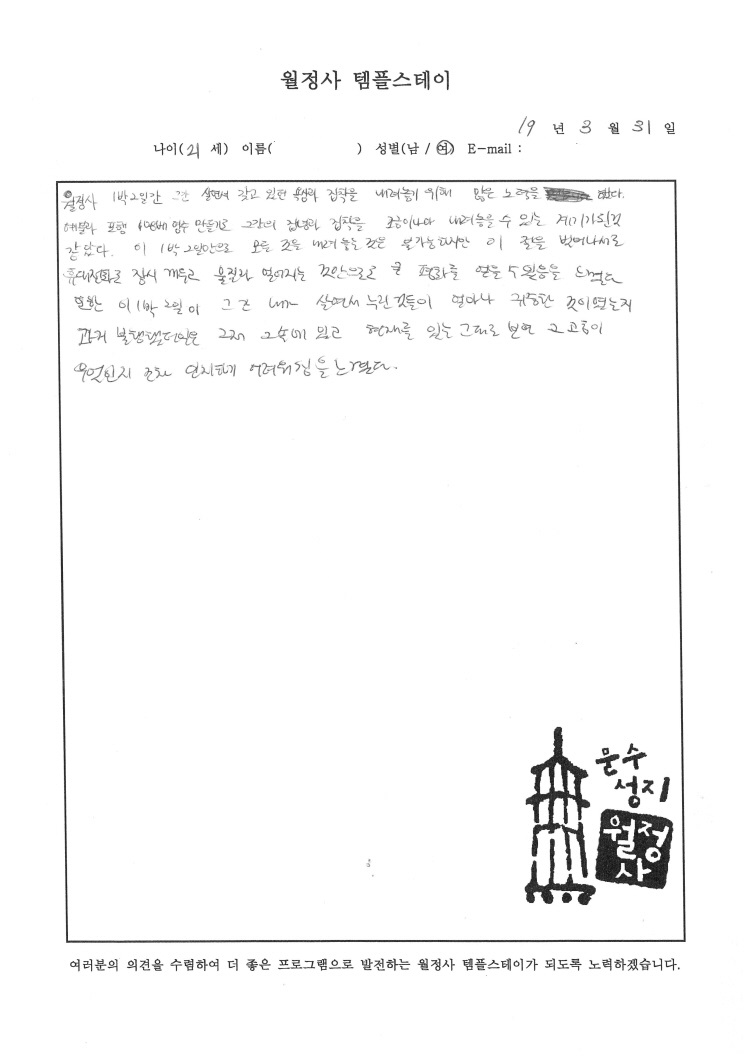 월정사 템플스테이
19 년 3 월 31 일
나이(21 세) 이름( ) 성별(남 / 여) E-mail :
월정사 1박2일간 그간 살면서 갖고 있던 욕심과 집착을 내려놓기 위해 많은 노력을 했다.
예불과 포행 염주 만들기로 그간의 집념과 집착을 조금이나마 내려놓을 수 있는 계기가 된것
같았다. 이 1박 2일만으로 모든 것을 내려 놓는 것은 불가능하지만 이 곳을 벗어나서도
휴대전화를 잠시 꺼두고 물질과 멀어지는 것만으로도 큰 평화를 얻을 수 있음을 느꼈다
또한 이 1박 2일이 그간 내가 살면서 누린 것들이 얼마나 귀중한 것이였는지
과거 불행했던일은 그저 그속에 있고 현재를 있는 그대로 보면 그 고통이
무엇인지 조차 인지하기 어려워짐을 느꼈다.
문수
성지
월정
사
여러분의 의견을 수렴하여 더 좋은 프로그램으로 발전하는 월정사 템플스테이가 되도록 노력하겠습니다.